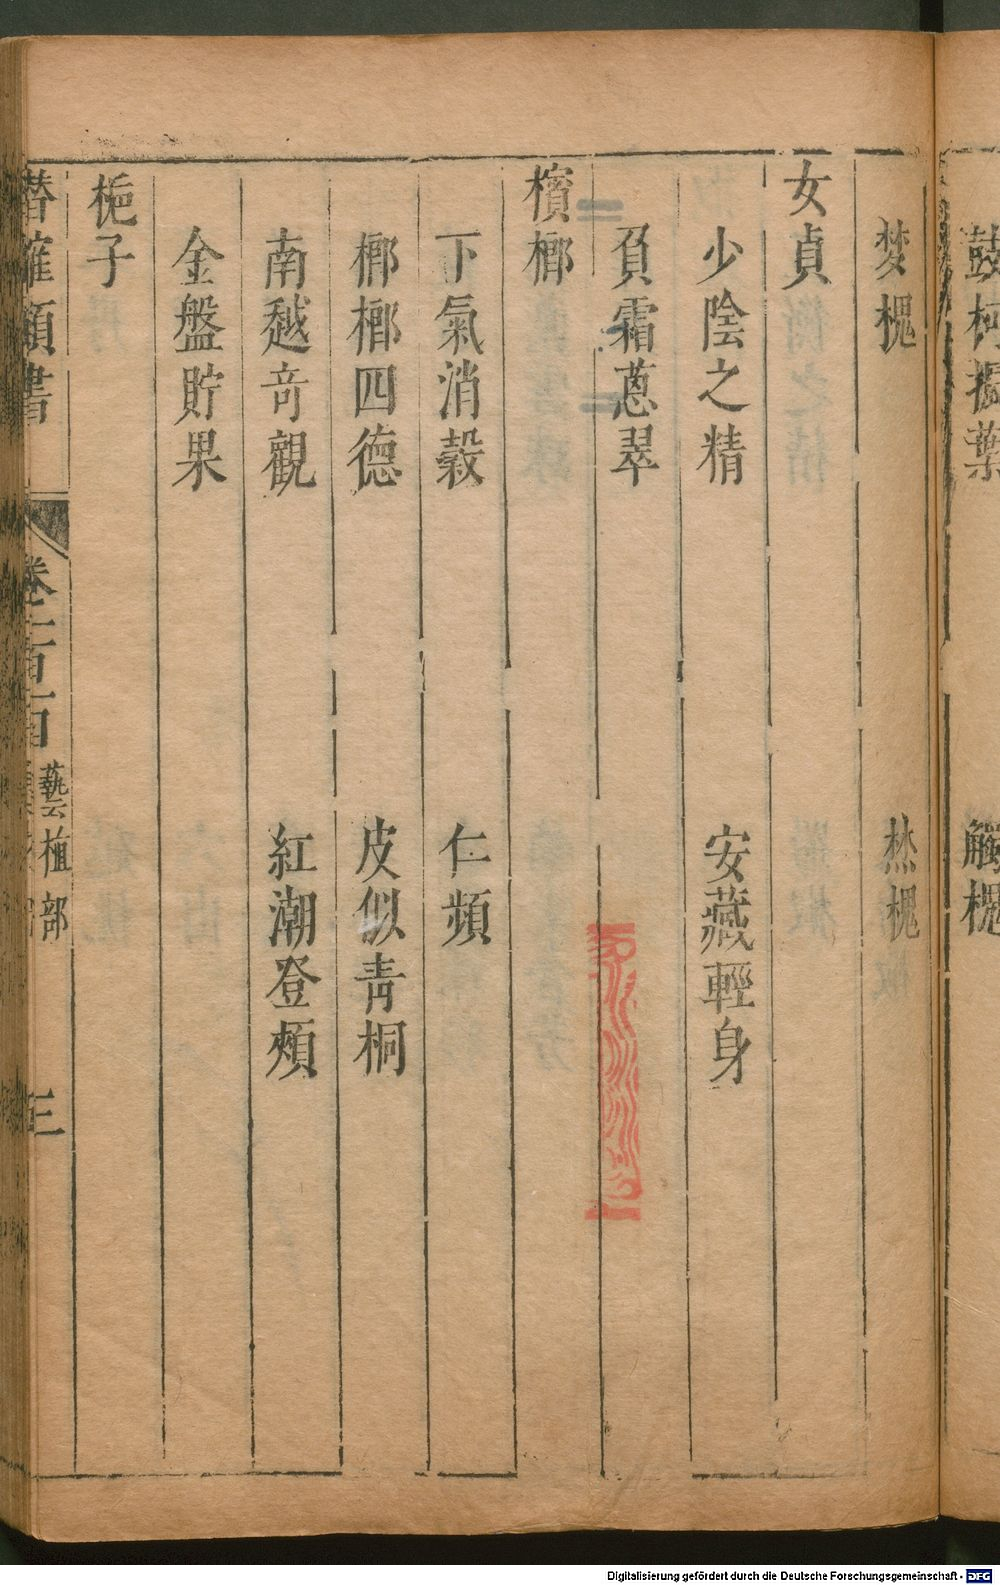 鼓柯振葉 觸槐
梦槐 焚槐
女貞
少陰之精 安藏輕身
負霜蔥翠
檳榔
下氣消穀 仁頻
榔榔四德 皮似青桐
南越奇觀 紅潮登頰
金盤貯果
梔子
潛確類書 藝植部 三
Digitalisierung gefördert durch die Deutsche Forschungsgemeinschaft - DFG